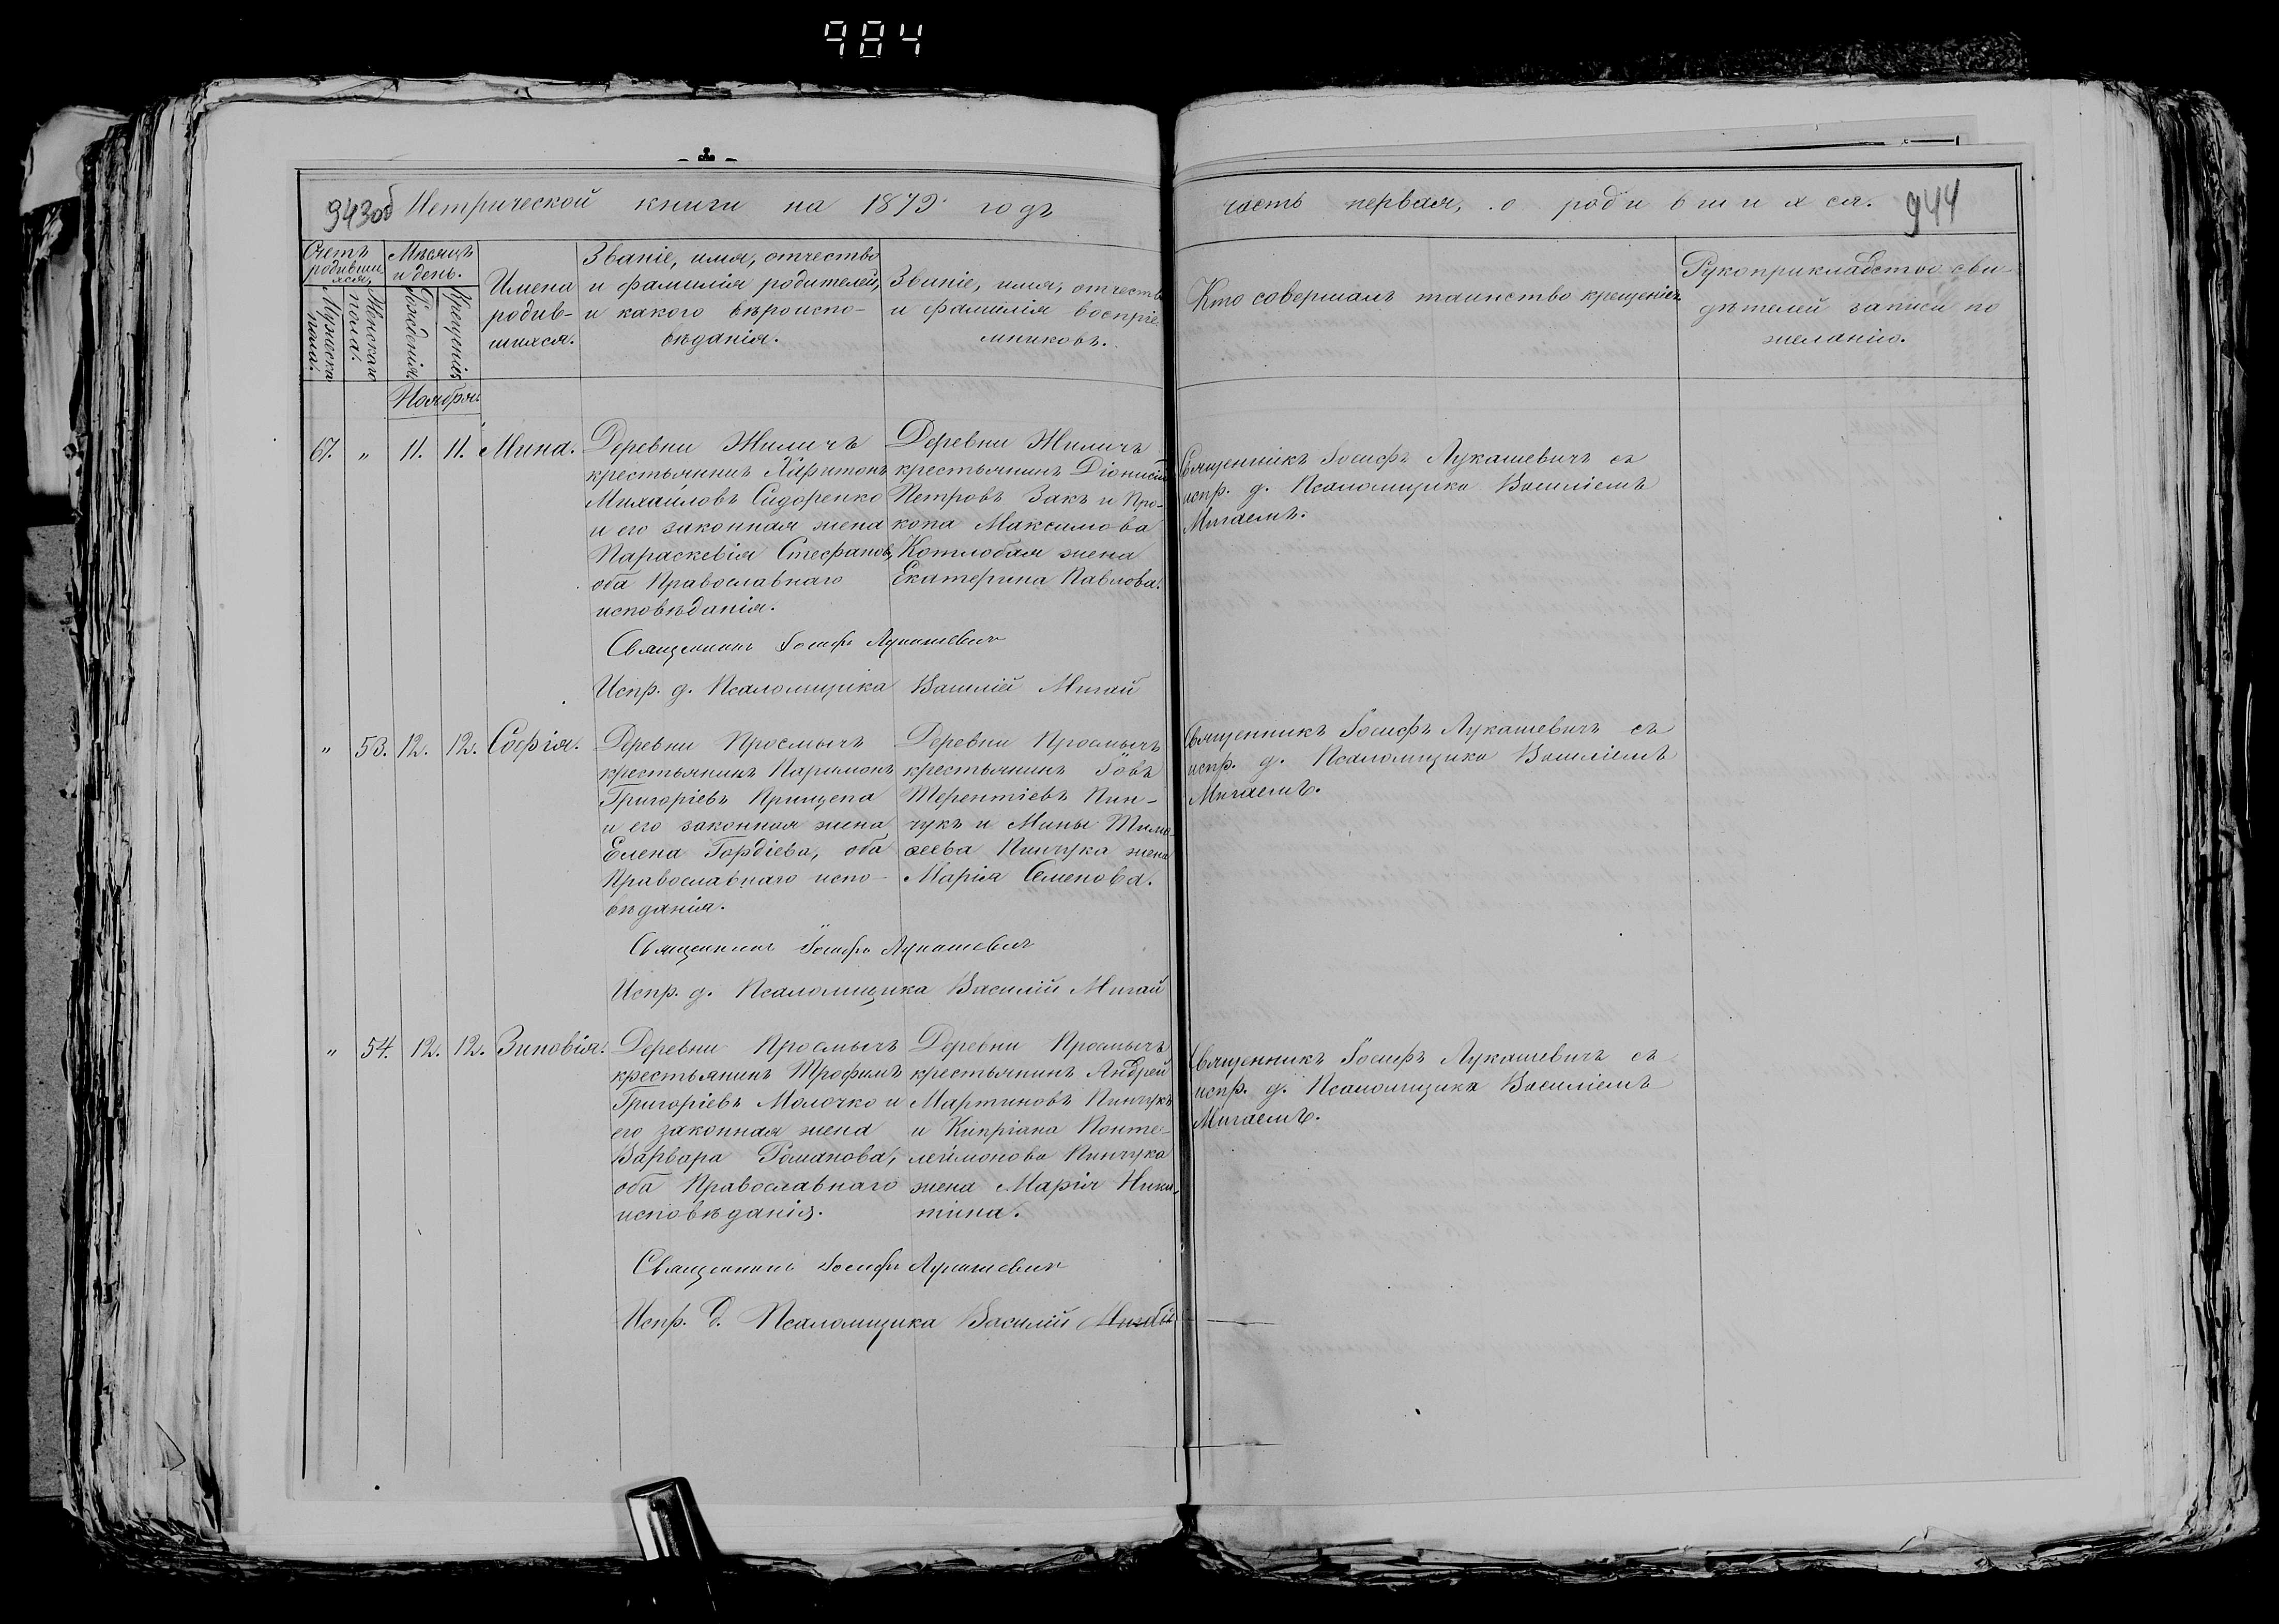 984
943об Метрической книги на 1879 годъ
часть первая, о родившихся. 944
Счетъ родившихся.
Мужеска пола.
Женскаго пола.
Мѣсяцъ и день.
Рожденія.
Крещенія.
Имена родив-
шихся.
Званіе, имя, отчество
и фамилія родителей,
и какого вѣроиспо-
вѣданія.
Званіе, имя, отчество
и фамилія воспріе-
мниковъ.
Кто совершалъ таинство крещенія.
Рукоприкладство сви-
дѣтелей записи по
желанію.
Ноября.
67. " 11. 11. Мина.
Деревни Жиличъ
крестьянинъ
Михаиловъ Сидоренко
и его законная жена
Параскевія Стефанова,
оба Православнаго
исповѣданія.
Деревни Жиличъ
крестьянинъ Діонисій
Петровъ Закъ и Про-
копа Максимова
Котлобая жена
Екатерина Павлова.
Священникъ Іосифъ Лукашевичъ съ
испр. д. Псаломщика Василіемъ
Мигаемъ.
Священникъ Іосифъ Лукашевичъ
Испр. д. Псаломщика Василій Мигай
" 53. 12. 12. Софія.
Деревни Просмычъ
крестьянинъ Парамонъ
Григоріевъ Прищепа
и его законная жена
Елена Гордіева, оба
Православнаго испо-
вѣданія.
Деревни Просмычъ
крестьянинъ Іовъ
Терентіевъ Пин-
чукъ и Мины Тимо-
ѳеева Пинчука жена
Марія Семенова.
Священникъ Іосифъ Лукашевичъ съ
испр. д. Псаломщика Василіемъ
Мигаемъ.
Священникъ Іосифъ Лукашевичъ
Испр. д. Псаломщика Василій Мигай
" 54. 12. 12. Зиновія.
Деревни Просмычъ
крестьянинъ Трофимъ
Григоріевъ Молочко и
его законная жена
Варвара Романова,
оба Православнаго
исповѣданія.
Деревни Просмычъ
крестьянинъ Андрей
Мартиновъ Пинчукъ
и Кипріана Понте-
леймонова Пинчука
жена Марія Ники-
тина.
Священникъ Іосифъ Лукашевичъ съ
испр. д. Псаломщика Василіемъ
Мигаемъ.
Священникъ Іосифъ Лукашевичъ
Испр. д. Псаломщика Василій Мигай